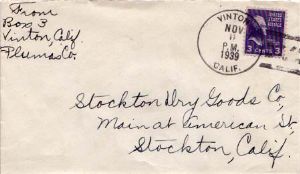 From
Box 3
Vinton, Calif
Plumas Co.
VINTON
NOV
P.M.
1939
CALIF.
3 CENTS 3
Stockton Dry Goods Co,
Main at American St,
Stockton, Calif.